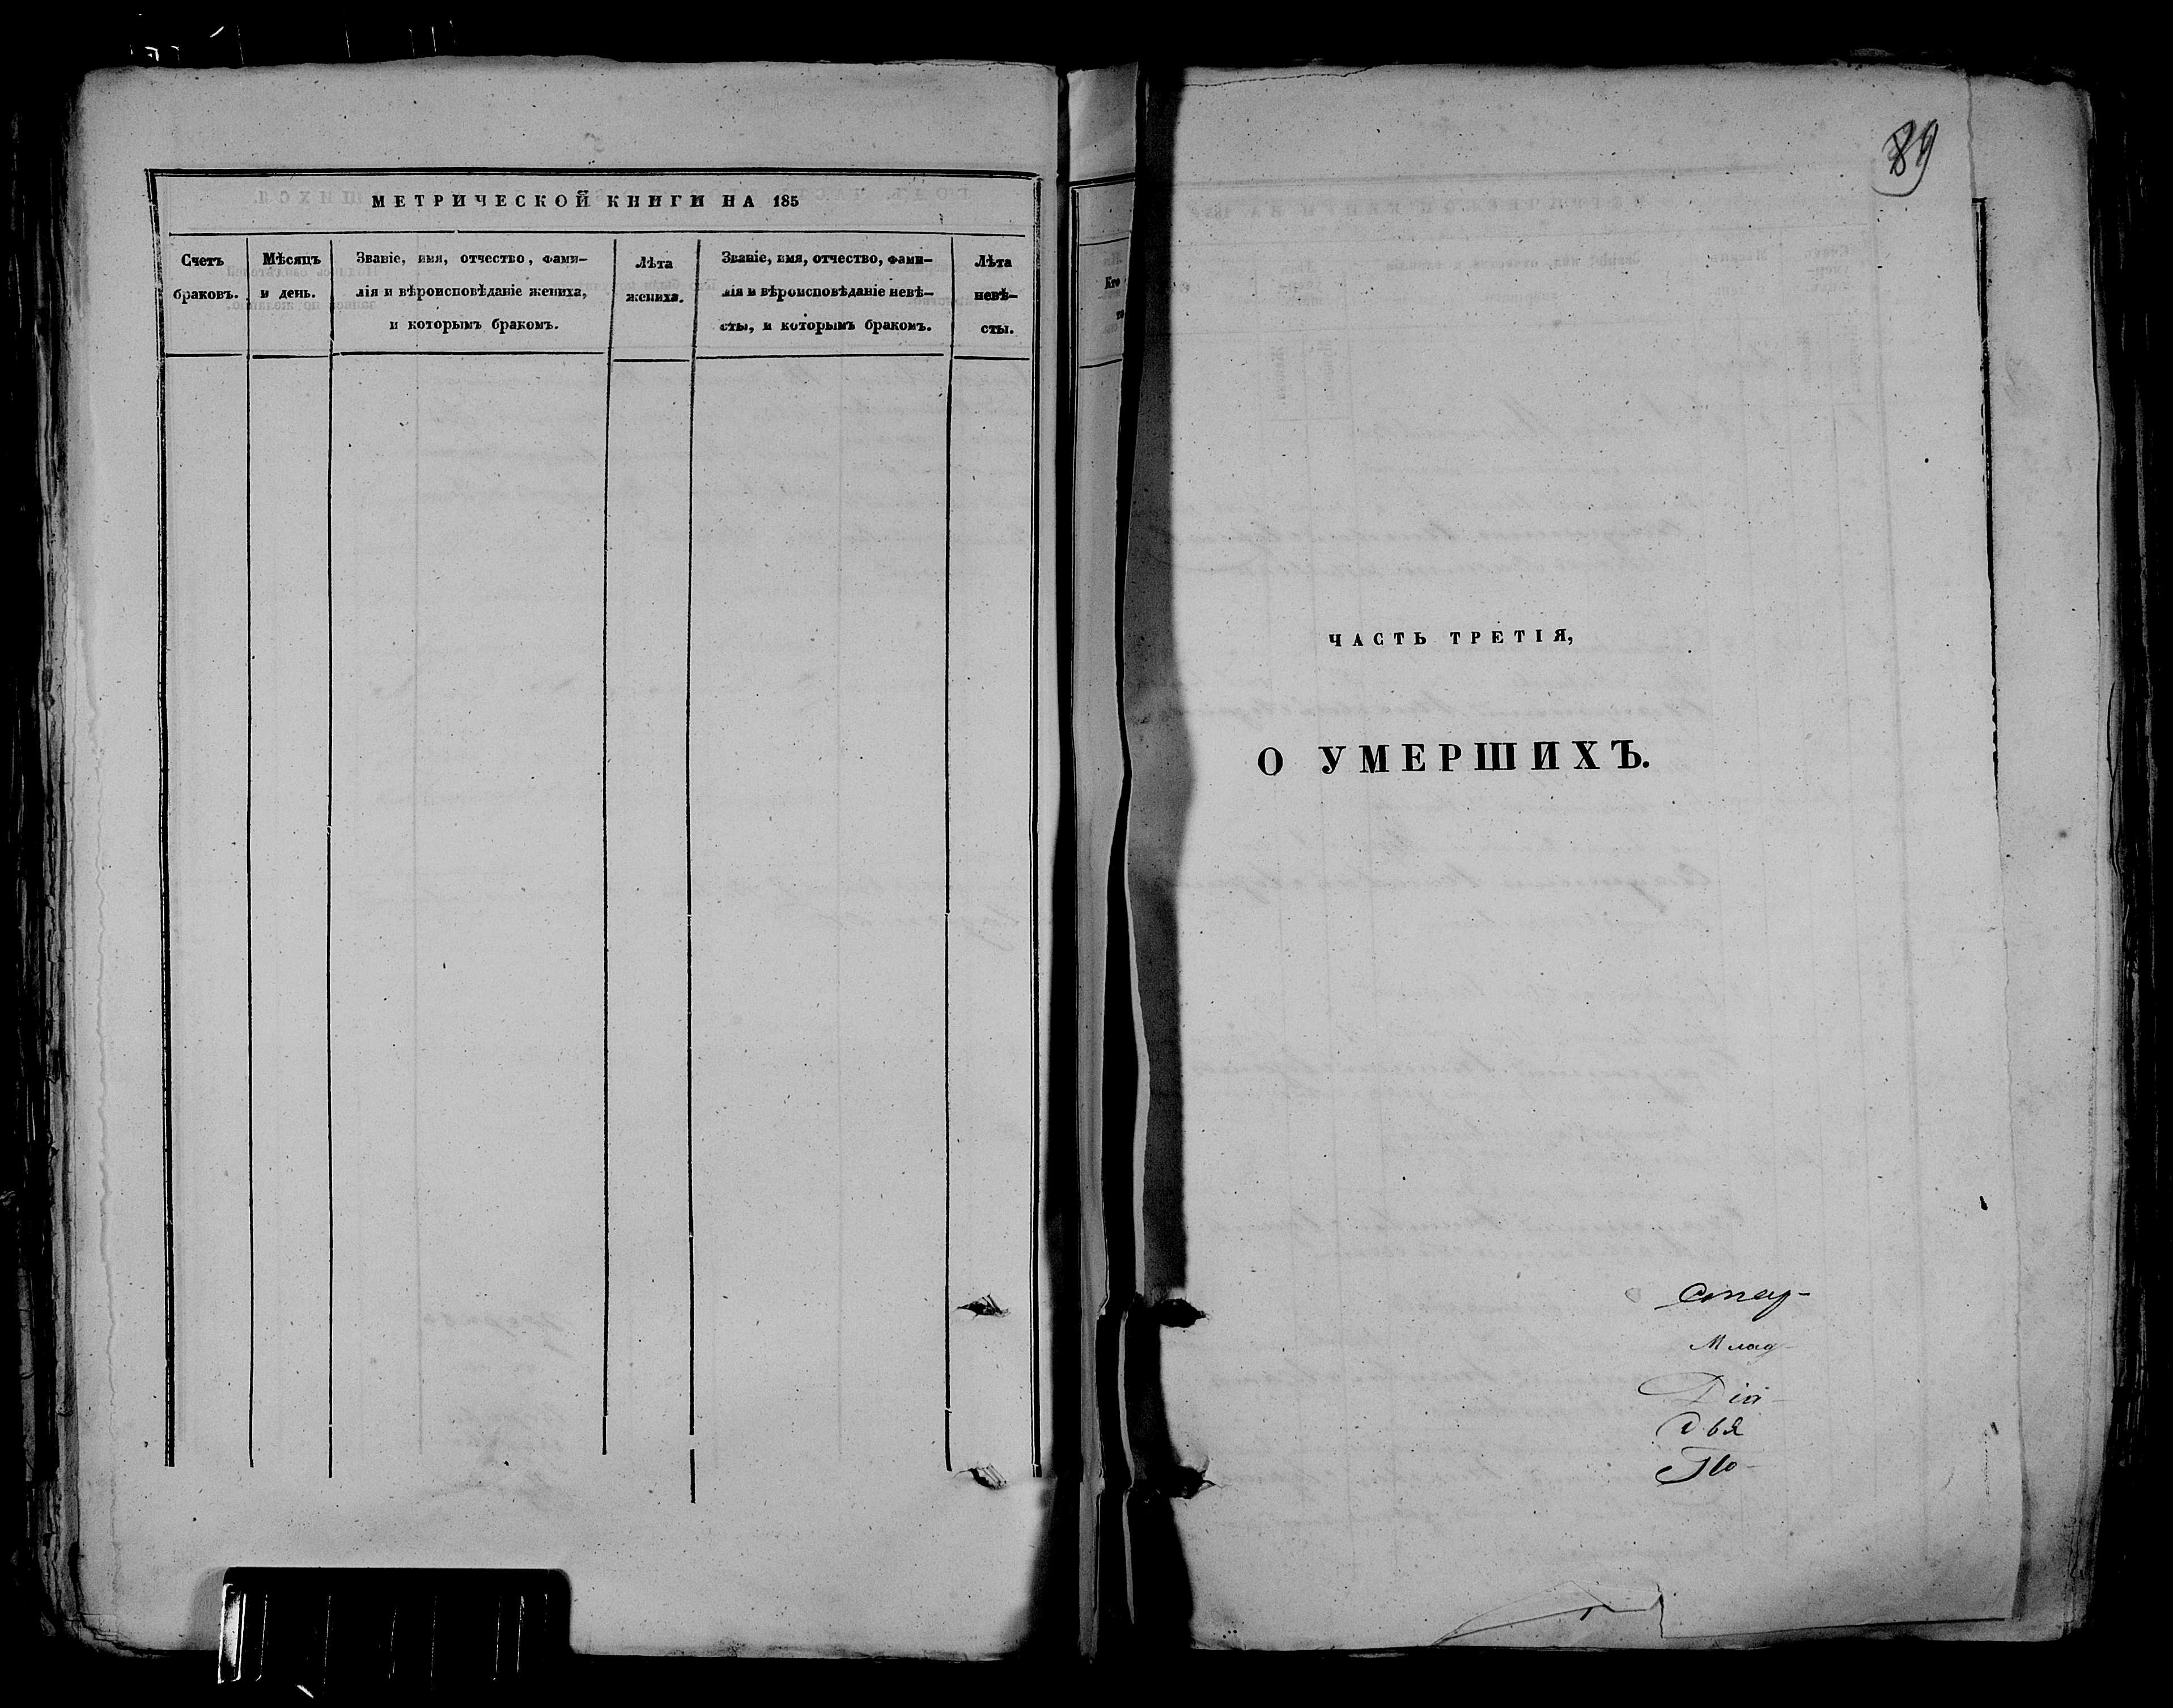 МЕТРИЧЕСКОЙ КНИГИ НА 185
Счетъ браковъ.
Мѣсяцъ и день.
Званіе, имя, отчество, фами-
лія и вѣроисповѣданіе жениха,
и которымъ бракомъ.
Лѣта
жениха.
Званіе, имя, отчество, фами-
лія и вѣроисповѣданіе невѣ-
сты, и которымъ бракомъ.
Лѣта
невѣ-
сты.
Кто
89
ЧАСТЬ ТРЕТІЯ,
О УМЕРШИХЪ.
Млад-
Дья
По-